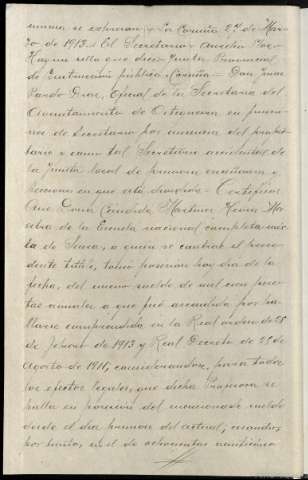 misma se expresan = La Coruña 27 de Mar-
zo de 1913 = El Secretario = Aurelio
Hay un sello que dice: Junta Provincial
de Instrucción pública = Coruña = Don Juan
Pardo Oficial de la Secretaría del
Ayuntamiento de Ortigueira, en funcio-
nes de Secretario por ausencia del propie-
tario y como tal Secretario accidental de
la Junta local de primera enseñanza y
sección en que está dividida = Certifico:
Que Doña Cándida Martínez Ma-
estra de la Escuela nacional completa mix-
ta de a quien se cambió el prece-
dente título, tomó posesión hoy día de la
fecha, del nuevo sueldo de mil cien pe-
setas anuales a que fué ascendida por ha-
llarse comprendida en la Real orden de 28
de febrero de 1913 y Real Decreto de 25 de
Agosto de 1911, considerándose, para todos
los efectos legales, que dicha Profesora se
halla en posesión del mencionado sueldo
desde el día primero del actual, cesando,
por tanto, en el de ochocientas veinticinco